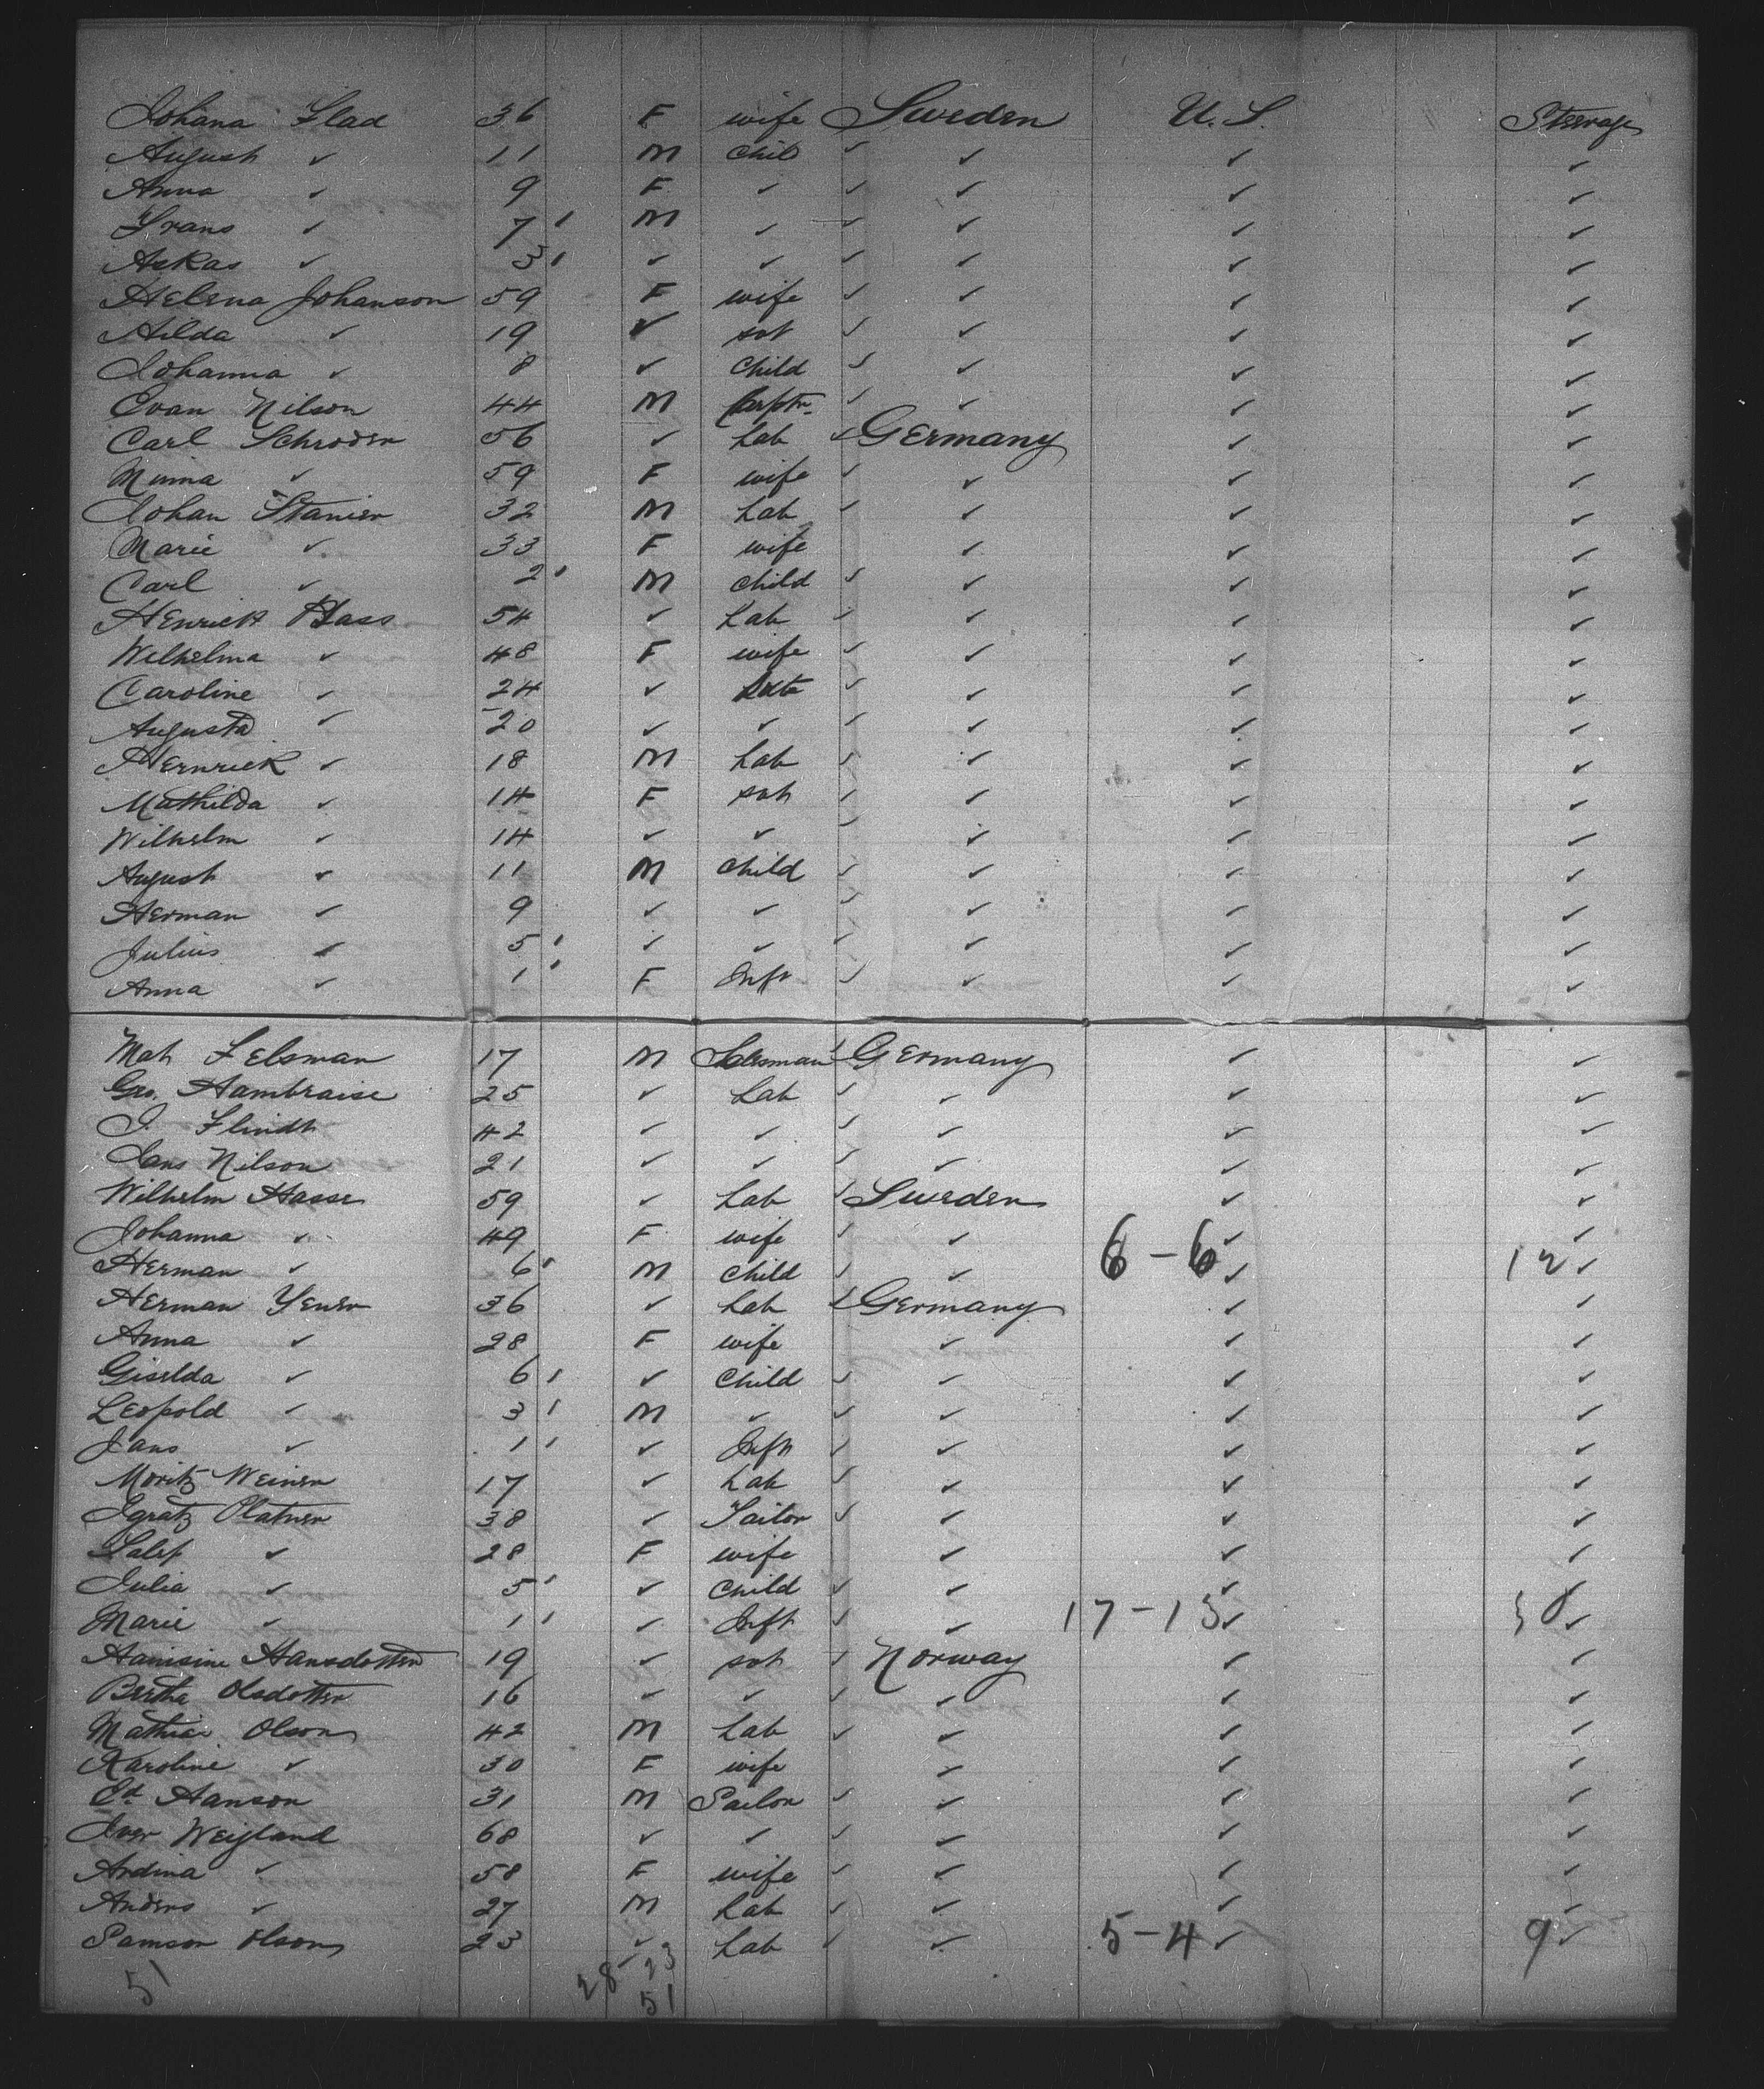 Johana Flad 36 F wife Sweden U.S. Steerage
August ✓ 11 M Chil ✓ ✓ ✓ ✓
Anna ✓ 9 F ✓ ✓ ✓ ✓ ✓
Frans ✓ 7 ' M ✓ ✓ ✓ ✓ ✓
Askas ✓ 3 ' ✓ ✓ ✓ ✓ ✓ ✓
Helena Johanson 59 F wife ✓ ✓ ✓ ✓
Hilda ✓ 19 ✓ ✓ ✓ ✓ ✓
Johanna ✓ 8 ✓ Child ✓ ✓ ✓ ✓
Evan Nilson 44 M Carptr. ✓ ✓ ✓ ✓
Carl Schroder 56 ✓ Lab ✓ Germany ✓ ✓
Minna ✓ 59 F wife ✓ ✓ ✓ ✓
Johan Stanier 32 M Lab ✓ ✓ ✓ ✓
Marie ✓ 33 F wife ✓ ✓ ✓
Carl ✓ 2 ' M child ✓ ✓ ✓ ✓
Henrich 54 ✓ Lab ✓ ✓ ✓ ✓
Wilhelma ✓ 48 F wife ✓ ✓ ✓ ✓
Caroline ✓ 24 ✓ ✓ ✓ ✓ ✓
Augusta ✓ 20 ✓ ✓ ✓ ✓ ✓ ✓
Hernrick ✓ 18 M Lab ✓ ✓ ✓ ✓
Mathilda ✓ 14 F ✓ ✓ ✓ ✓
Wilhelm ✓ 14 ✓ ✓ ✓ ✓ ✓ ✓
August ✓ 11 M Child ✓ ✓ ✓ ✓
Herman ✓ 9 ✓ ✓ ✓ ✓ ✓ ✓
Julius ✓ 5 ' ✓ ✓ ✓ ✓ ✓ ✓
Anna ✓ 1 ' F Inft ✓ ✓ ✓ ✓
Felsman 17 M Salesman ✓ Germany ✓ ✓
Geo. Hambraise 25 ✓ Lab ✓ ✓ ✓ ✓
J. Flindt 42 ✓ ✓ ✓ ✓ ✓ ✓
Jans Nilson 21 ✓ ✓ ✓ ✓ ✓ ✓
Wilhelm Hasse 59 ✓ Lab ✓ Sweden ✓ ✓
Johanna ✓ 49 F wife ✓ ✓ ✓ ✓
Herman ✓ 6 ' M Child ✓ ✓ 6-6 ✓ 12 ✓
Herman Yener 36 ✓ Lab ✓ Germany ✓ ✓
Anna ✓ 28 F wife ✓ ✓ ✓
Giselda ✓ 6 ' ✓ Child ✓ ✓ ✓ ✓
Leopold ✓ 3 ' M ✓ ✓ ✓ ✓ ✓
Jans ✓ 1 ' ✓ Inft ✓ ✓ ✓ ✓
Moritz Weiner 17 ✓ Lab ✓ ✓ ✓ ✓
Igratz Platner 38 ✓ Tailor ✓ ✓ ✓ ✓
✓ 28 F wife ✓ ✓ ✓
Julia ✓ 5 ' ✓ Child ✓ ✓ ✓ ✓
Marie ✓ 1 ' ✓ Inft ✓ ✓ 17-13 ✓ 30 ✓
Hansdotter 19 ✓ ✓ Norway ✓ ✓
Bertha Olsdotter 16 ✓ ✓ ✓ ✓ ✓ ✓
Mathias Olson 42 M Lab ✓ ✓ ✓ ✓
Karoline ✓ 30 F wife ✓ ✓ ✓
Ed. Hanson 31 M Sailor ✓ ✓ ✓ ✓
Iver Weigland 68 ✓ ✓ ✓ ✓ ✓ ✓
Ardina ✓ 58 F wife ✓ ✓ ✓ ✓
Anders ✓ 27 M Lab ✓ ✓ ✓ ✓
Samson Olson 23 ✓ Lab ✓ ✓ 5-4 ✓ 9 ✓
51 28-23
51